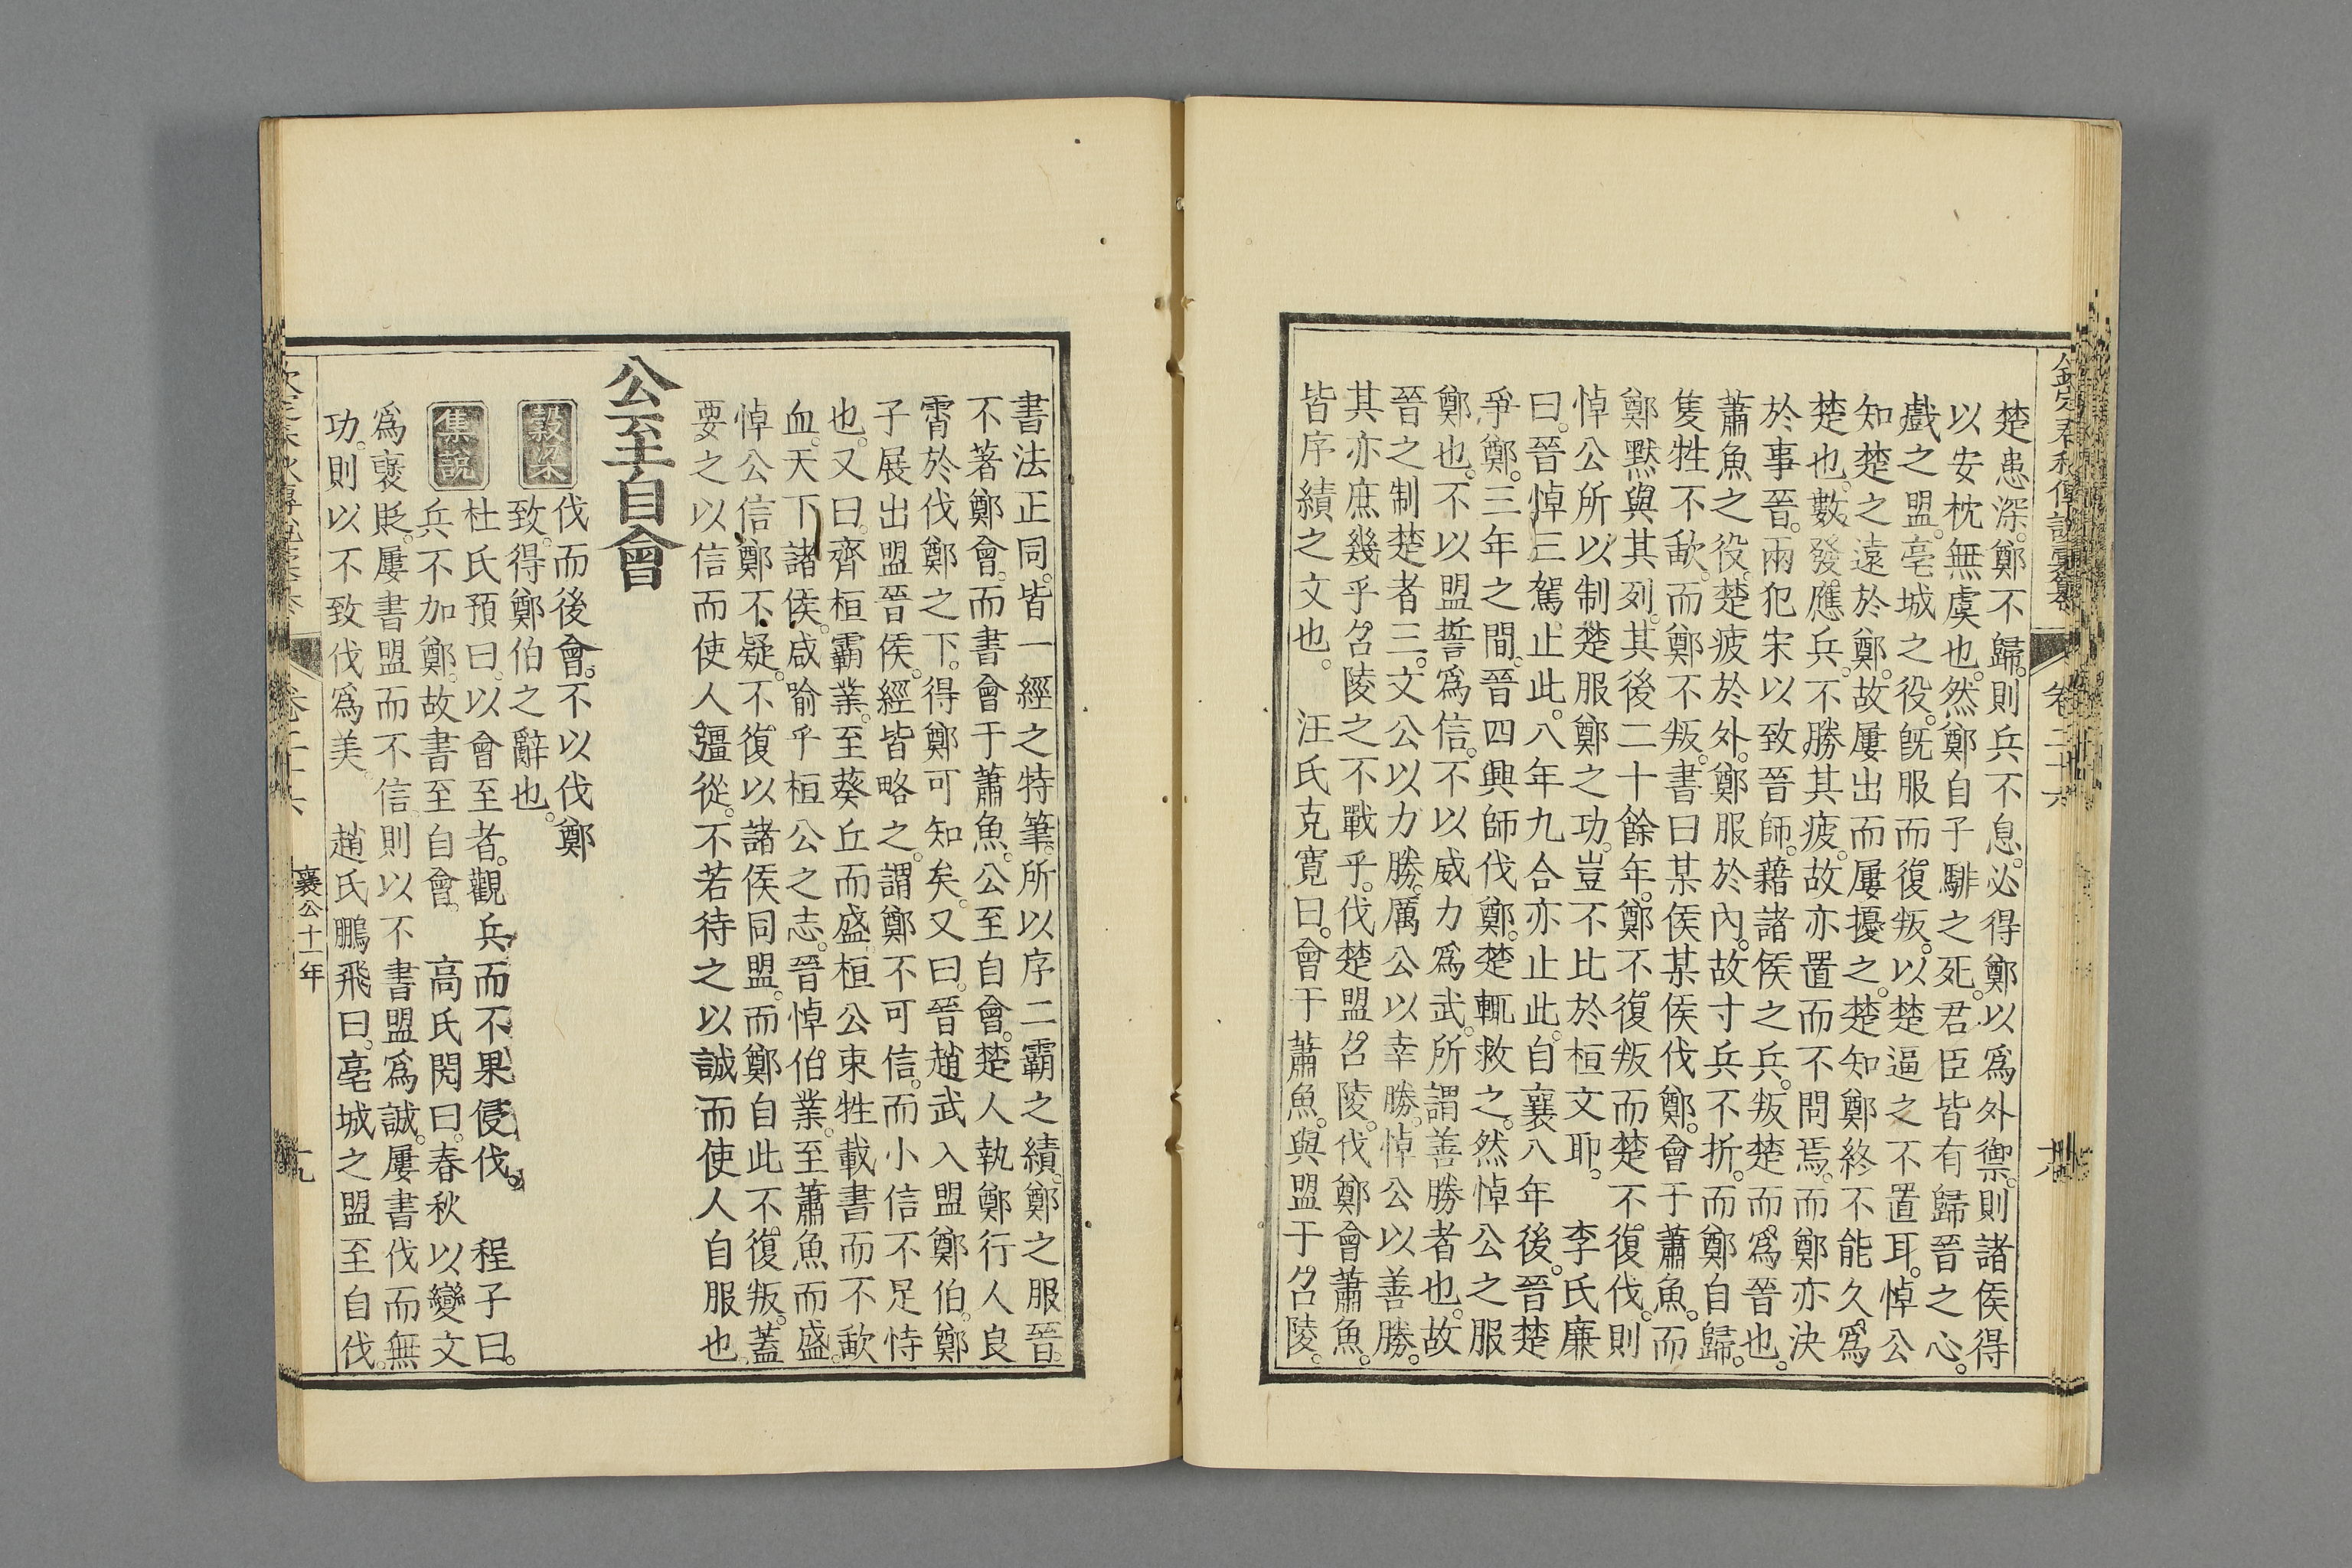 欽定春秋傳說彙纂 卷二十六
楚患深。鄭不歸。則兵不息。必得鄭以為外禦。則諸侯得
以安枕無虞也。然鄭自子騑之死。君臣皆有歸晉之心。
戲之盟。亳城之役。旣服而復叛。以楚逼之不置耳。悼公
知楚之遠於鄭。故屢出而屢擾之。楚知鄭終不能久爲
楚也。數發應兵。不勝其疲。故亦置而不問焉。而鄭亦決
於事晉。兩犯宋以致晉師。藉諸侯之兵。叛楚而爲晉也。
蕭魚之役。楚疲於外。鄭服於內。故寸兵不折。而鄭自歸。
隻牲不歃。而鄭不叛。書曰某侯某侯伐鄭。會于蕭魚。而
鄭默與其列。其後二十餘年。鄭不復叛而楚不復伐。則
悼公所以制楚服鄭之功。豈不比於桓文耶。 李氏廉
曰。晉悼三駕止此。八年九合亦止此。自襄八年後。晉楚
爭鄭。三年之間。晉四興師伐鄭。楚輒救之。然悼公之服
鄭也。不以盟誓爲信。不以威力爲武。所謂善勝者也。故
晉之制楚者三。文公以力勝。厲公以幸勝。悼公以善勝。
其亦庶幾乎召陵之不戰乎。伐楚盟召陵。伐鄭會蕭魚。
皆序績之文也。 汪氏克寬曰。會于蕭魚。與盟于召陵。
書法正同。皆一經之特筆。所以序二霸之績。鄭之服晉。
不著鄭會。而書會于蕭魚。公至自會。楚人執鄭行人良
霄於伐鄭之下。得鄭可知矣。又曰。晉趙武入盟鄭伯。鄭
子展出盟晉侯。經皆略之。謂鄭不可信。而小信不足恃
也。又曰。齊桓霸業。至葵丘而盛。桓公束牲載書而不歃
血。天下諸侯。咸喻乎桓公之志。晉悼伯業。至蕭魚而盛。
悼公信鄭不疑。不復以諸侯同盟。而鄭自此不復叛。蓋
要之以信而使人彊從。不若待之以誠而使人自服也。
公至自會
穀梁 伐而後會。不以伐鄭
致。得鄭伯之辭也。
集說 杜氏預曰。以會至者。觀兵而不果侵伐。 程子曰。
兵不加鄭。故書至自會。 高氏閌曰。春秋以變文
爲褒貶。屢書盟而不信。則以不書盟爲誠。屢書伐而無
功。則以不致伐爲美。 趙氏鵬飛曰。亳城之盟至自伐。
襄公十一年